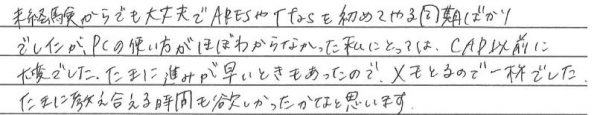 未経験からでも大丈夫でAPESやTなsも初めてやる困難ばかり
でしたが、PCの使い方がほぼわからなかった私にとっては、CAD以前に
大変でした。たまに進みが早いときもあったので、メモとるので一杯でした。
たまに教え合える時間も欲しかったかなと思います。